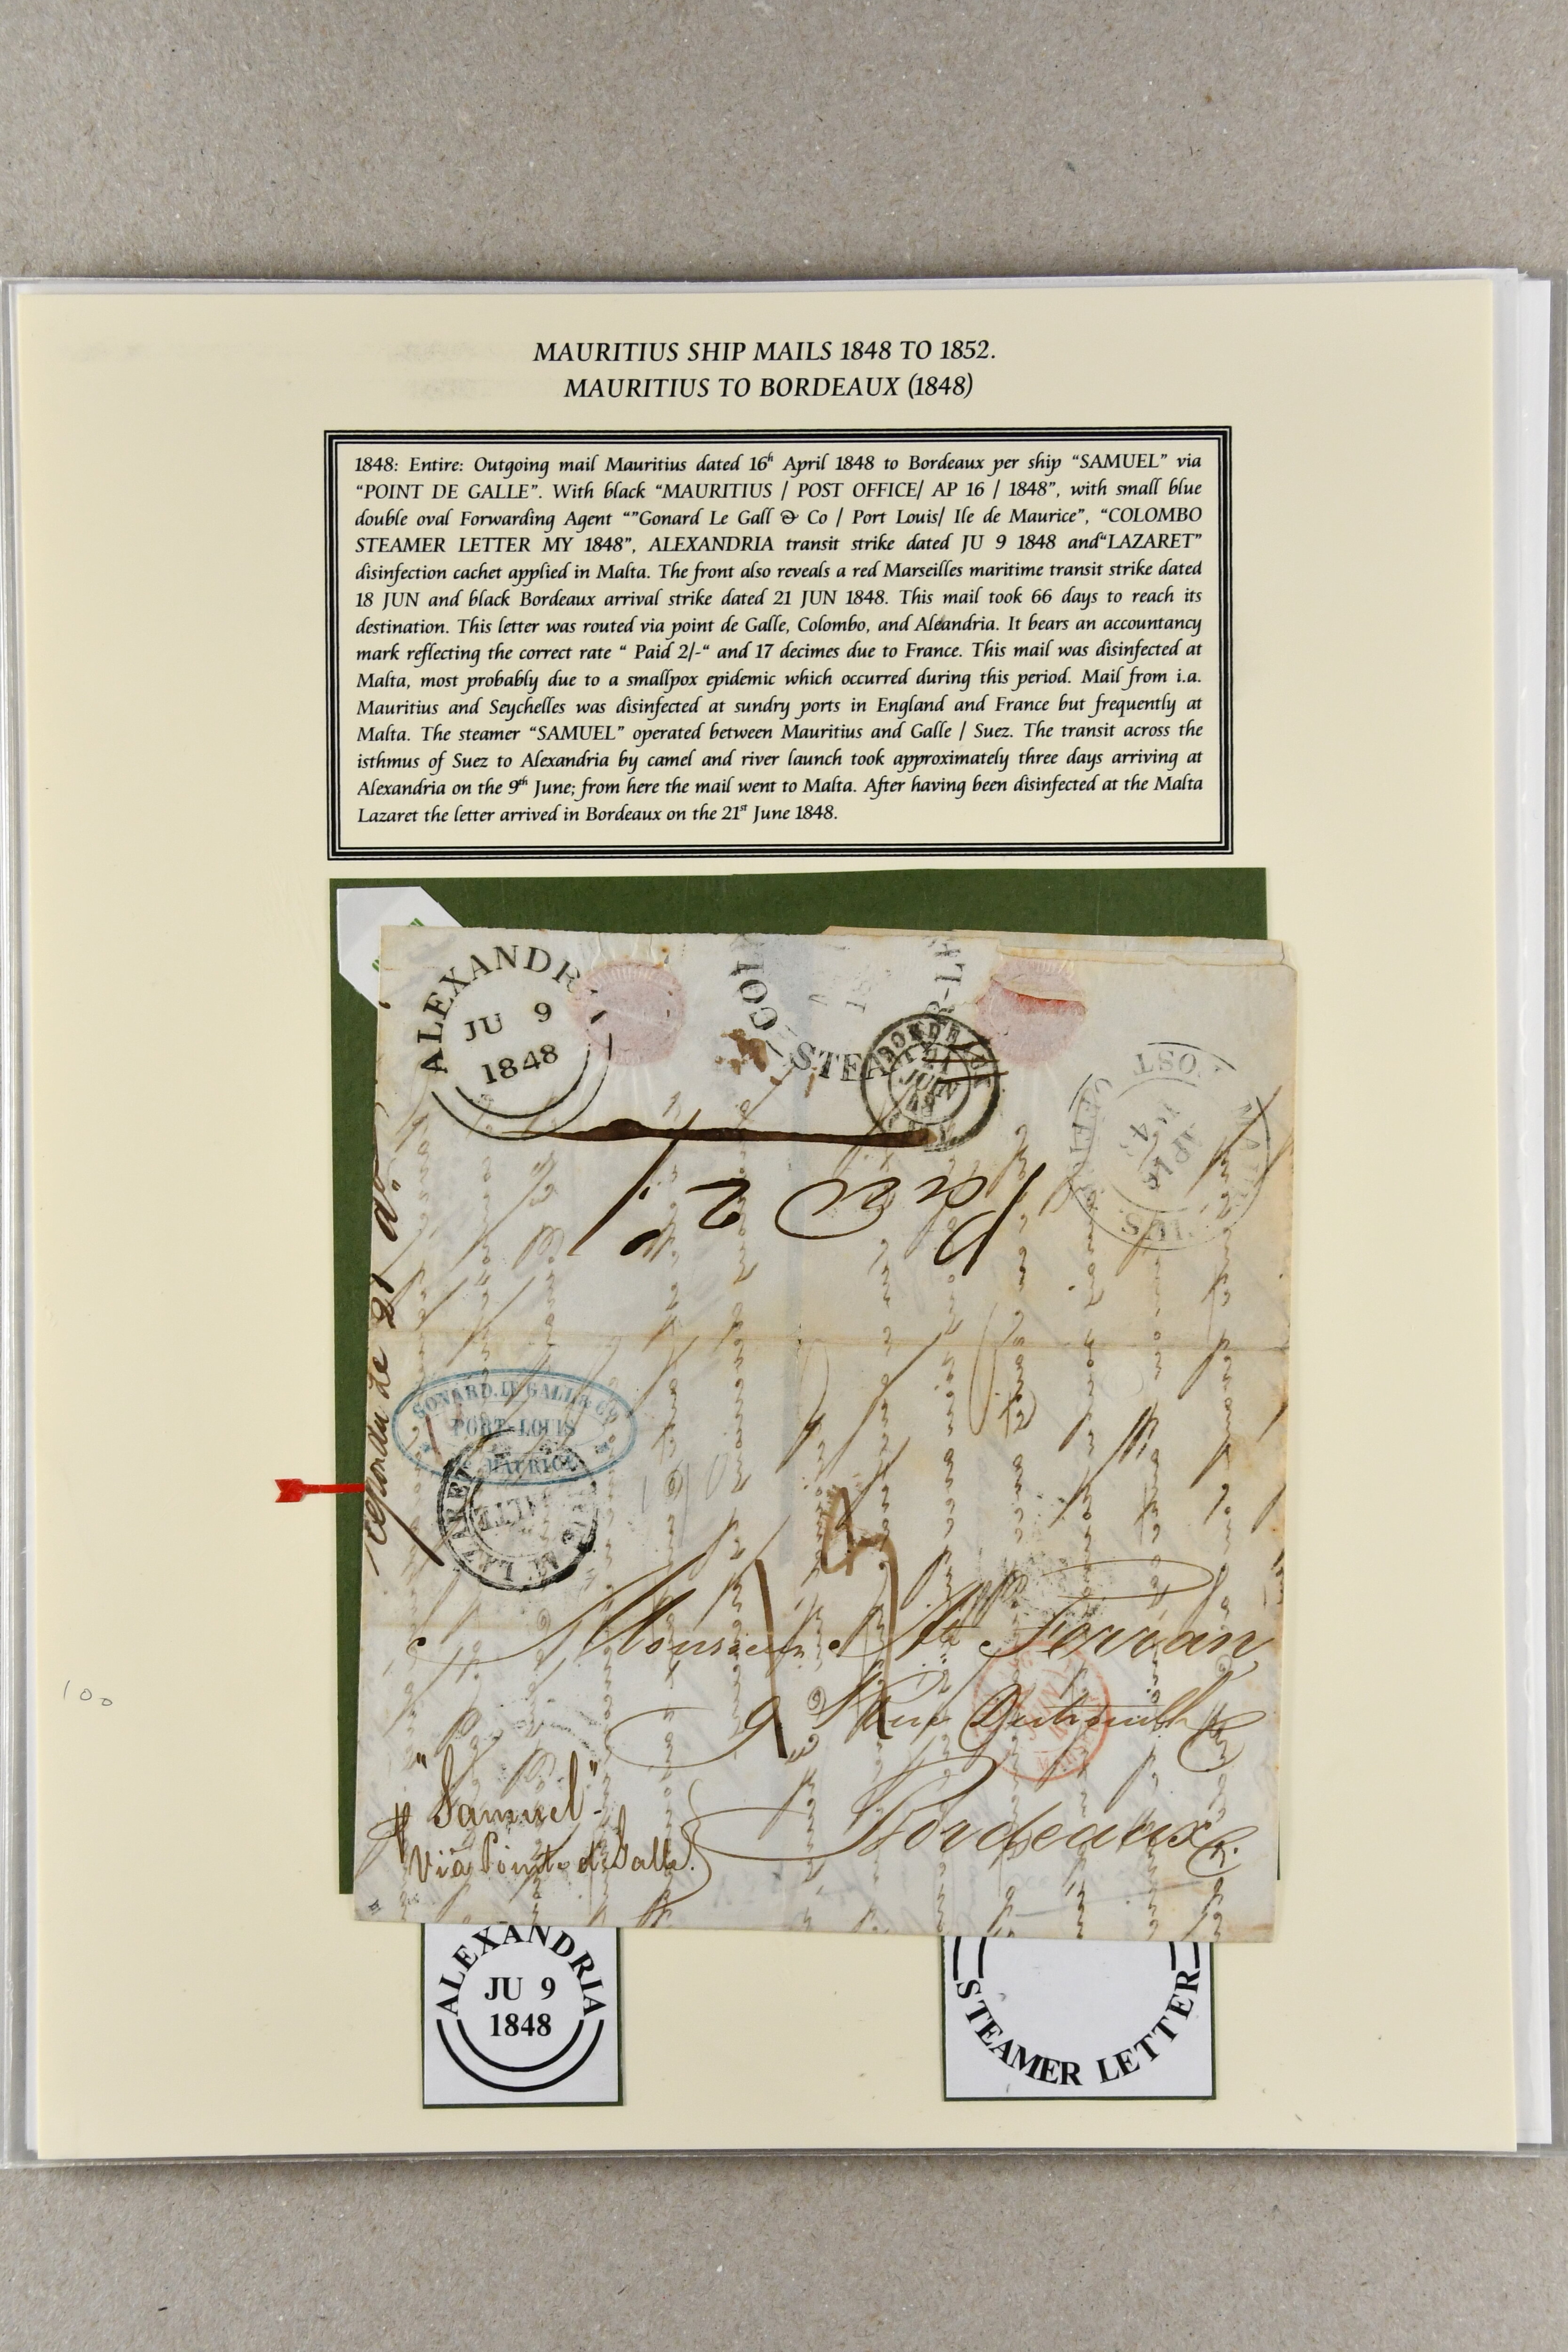 MAURITIUS SHIP MAILS 1848 TO 1852.
MAURITIUS TO BORDEAUX (1848)
1848: Entire: Outgoing mail Mauritius dated 16ʰ April 1848 to Bordeaux per ship “SAMUEL” via
“POINT DE GALLE”. With black “MAURITIUS / POST OFFICE/ AP 16 / 1848”, with small blue
double oval Forwarding Agent “”Gonard Le Gall & Co / Port Louis/ Ile de Maurice”, “COLOMBO
STEAMER LETTER MY 1848”, ALEXANDRIA transit strike dated JU 9 1848 and“LAZARET”
disinfection cachet applied in Malta. The front also reveals a red Marseilles maritime transit strike dated
18 JUN and black Bordeaux arrival strike dated 21 JUN 1848. This mail took 66 days to reach its
destination. This letter was routed via point de Galle, Colombo, and Aleandria. It bears an accountancy
mark reflecting the correct rate “ Paid 2/-“ and 17 decimes due to France. This mail was disinfected at
Malta, most probably due to a smallpox epidemic which occurred during this period. Mail from i.a.
Mauritius and Seychelles was disinfected at sundry ports in England and France but frequently at
Malta. The steamer “SAMUEL” operated between Mauritius and Galle / Suez. The transit across the
isthmus of Suez to Alexandria by camel and river launch took approximately three days arriving at
Alexandria on the 9ᵗʰ June; from here the mail went to Malta. After having been disinfected at the Malta
Lazaret the letter arrived in Bordeaux on the 21ˢᵗ June 1848.
ALEXANDR
JU 9
1848
STEA
BORDEAUX
21
AP 16
Paid 2/
GONARD. LE GALL & CO
PORT-LOUIS
MAURICE
LAZARET
Monsieur
Ferran
9 Rue
Bordeaux
"Samuel"
Via Pointe de Galle.
100
ALEXANDRIA
JU 9
1848
STEAMER LETTER